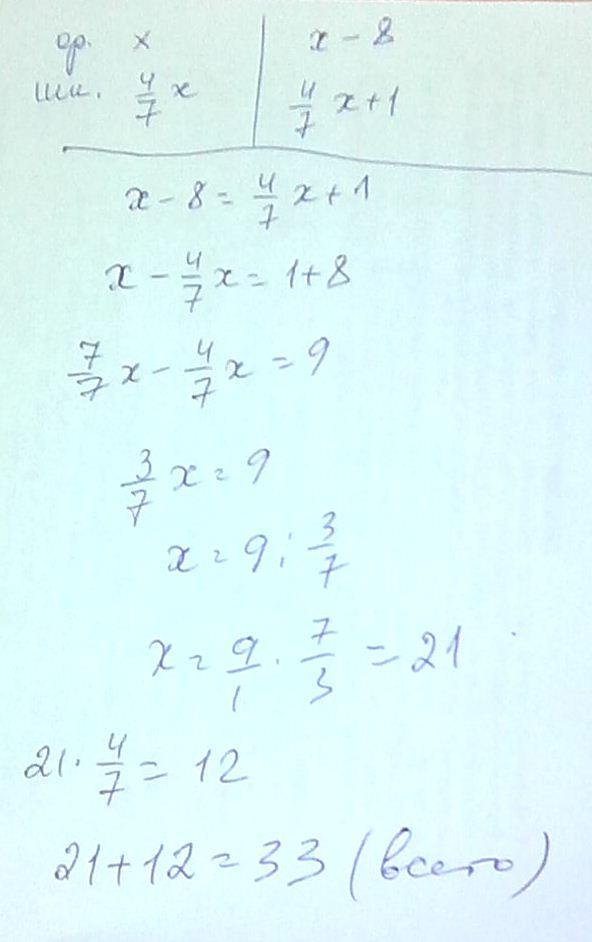 ор. x | x - 8
шк. 4/7 x | 4/7 x + 1
x - 8 = 4/7 x + 1
x - 4/7 x = 1 + 8
7/7 x - 4/7 x = 9
3/7 x = 9
x = 9 : 3/7
x = 9/1 · 7/3 = 21
21 · 4/7 = 12
21 + 12 = 33 (всего)